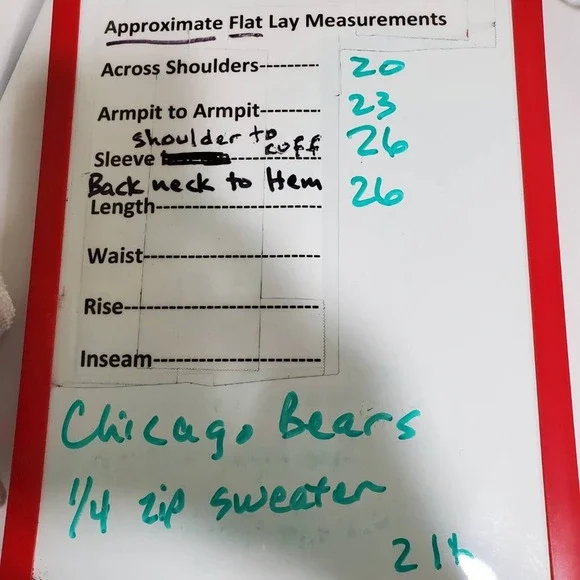 Approximate Flat Lay Measurements
Across Shoulders--------- 20
Armpit to Armpit--------- 23
shoulder to cuff
Sleeve 26
Back neck to Hem
Length------------------------- 26
Waist---------------------------
Rise------------------------------
Inseam-------------------------
Chicago Bears
1/4 zip sweater
2